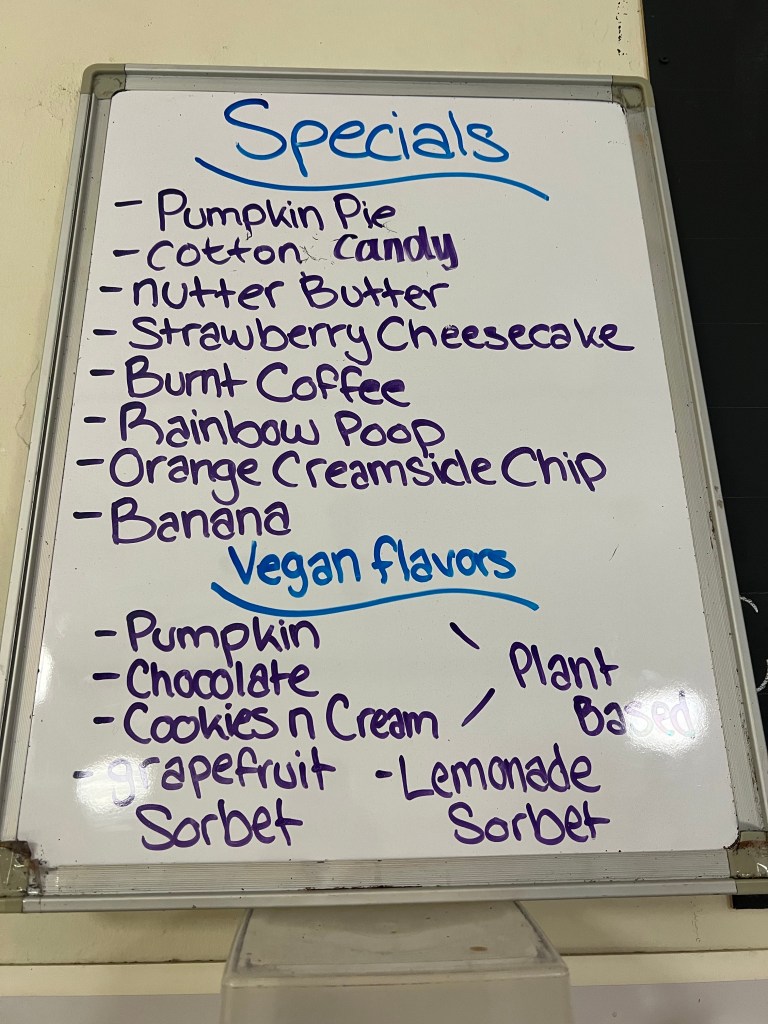 Specials
- Pumpkin Pie
- Cotton Candy
- nutter Butter
- Strawberry Cheesecake
- Burnt Coffee
- Rainbow Poop
- Orange Creamsicle Chip
- Banana
Vegan flavors
- Pumpkin
- Chocolate
- Cookies n Cream
Plant
Based
- grapefruit
Sorbet
- Lemonade
Sorbet